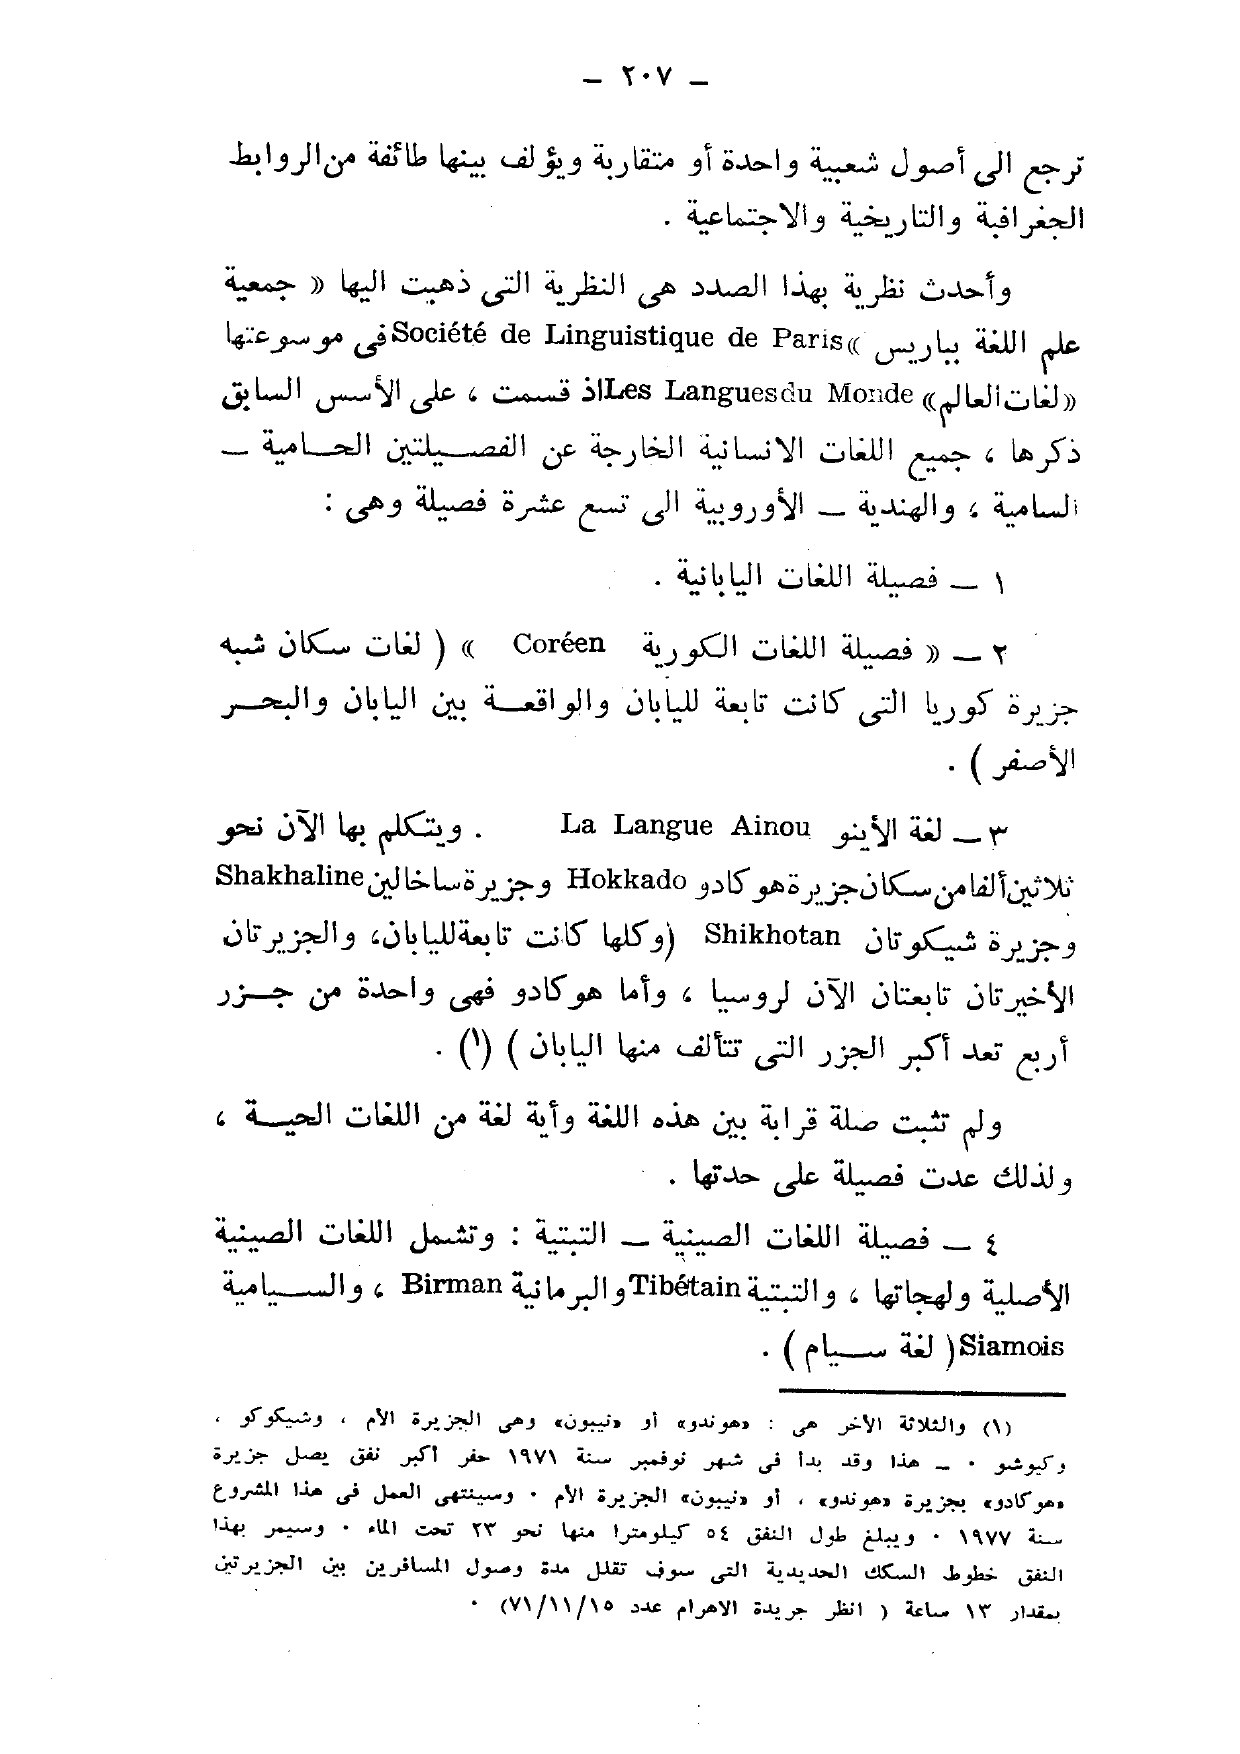 — ٢٠٧ —
ترجع الى أصول شعبية واحدة أو متقاربة ويؤلف بينها طائفة من الروابط
الجغرافية والتاريخية والاجتماعية .
وأحدث نظرية بهذا الصدد هى النظرية التى ذهبت اليها « جمعية
علم اللغة بباريس » Société de Linguistique de Paris فى موسوعتها
«لغات العالم» Les Langues du Monde اذ قسمت ، على الأسس السابق
ذكرها ، جميع اللغات الانسانية الخارجة عن الفصيلتين الحامية —
السامية ، والهندية — الأوروبية الى تسع عشرة فصيلة وهى :
١ — فصيلة اللغات اليابانية .
٢ — « فصيلة اللغات الكورية Coréen » ( لغات سكان شبه
جزيرة كوريا التى كانت تابعة لليابان والواقعة بين اليابان والبحر
الأصفر ) .
٣ — لغة الأينو La Langue Ainou . ويتكلم بها الآن نحو
ثلاثين ألفا من سكان جزيرة هوكادو Hokkado وجزيرة ساخالين Shakhaline
وجزيرة شيكوتان Shikhotan (وكلها كانت تابعة لليابان، والجزيرتان
الأخيرتان تابعتان الآن لروسيا ، وأما هوكادو فهى واحدة من جزر
أربع تعد أكبر الجزر التى تتألف منها اليابان ) (١) .
ولم تثبت صلة قرابة بين هذه اللغة وأية لغة من اللغات الحية ،
ولذلك عدت فصيلة على حدتها .
٤ — فصيلة اللغات الصينية — التبتية : وتشمل اللغات الصينية
الأصلية ولهجاتها ، والتبتية Tibétain والبرمانية Birman ، والسيامية
Siamois ( لغة سيام ) .
(١) والثلاثة الأخر هى : «هوندو» أو «نيبون» وهى الجزيرة الأم ، وشيكوكو ،
وكيوشو . — هذا وقد بدأ فى شهر نوفمبر سنة ١٩٧١ حفر أكبر نفق يصل جزيرة
«هوكادو» بجزيرة «هوندو» ، أو «نيبون» الجزيرة الأم . وسينتهى العمل فى هذا المشروع
سنة ١٩٧٧ . ويبلغ طول النفق ٥٤ كيلومترا منها نحو ٢٣ تحت الماء . وسيمر بهذا
النفق خطوط السكك الحديدية التى سوف تقلل مدة وصول المسافرين بين الجزيرتين
بمقدار ١٣ ساعة ( انظر جريدة الاهرام عدد ٧١/١١/١٥) .